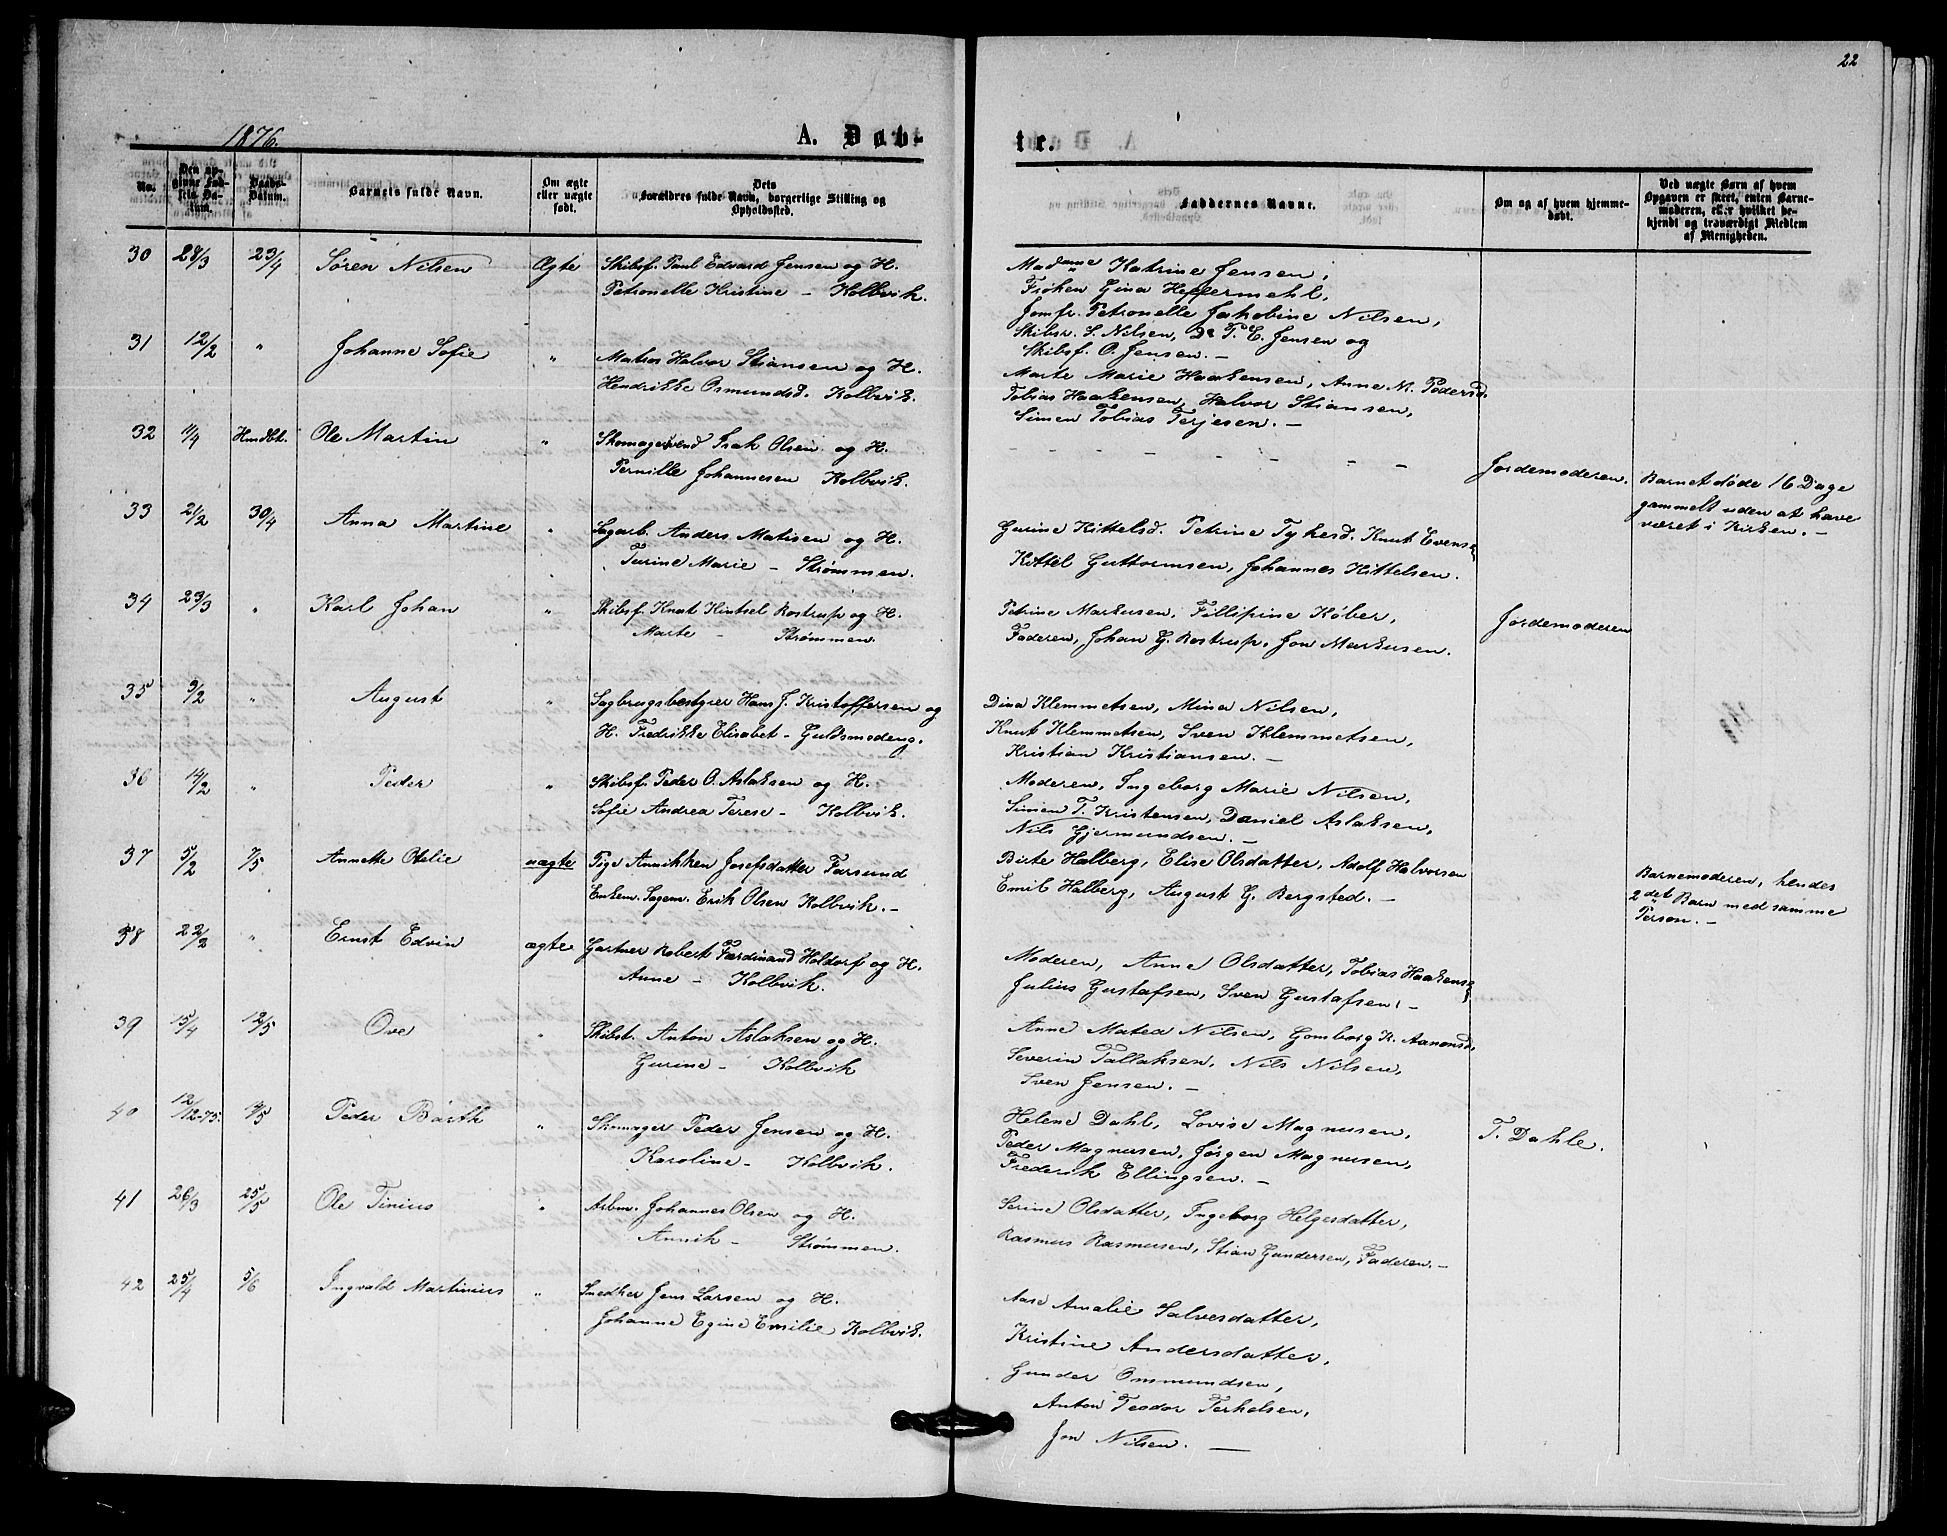 22
1876.
A. Døb-
te.
No.
Den op-
givne Fød-
sels Da-
tum.
Daabs-
Datum.
Barnets fulde Navn.
Om ægte
eller uægte
født.
Dets
Forældres fulde Navn, borgerlige Stilling og
Opholdssted.
Faddernes Navne.
Om og af hvem hjemme-
døbt.
Ved uægte Børn af hvem
Opgaven er skeet, enten Barne-
moderen, eller hvilket be-
kjendt og troværdigt Medlem
af Menigheden.
30 28/3 23/4 Søren Nilsen Ægte Skibsf. Paul Edvard Jensen og H.
Petronelle Kristine - Kolbvik.
Madame Katrine Jensen,
Frøken Gina Heffermehl,
Jomfr. Petronelle Jakobine Nilsen,
Skibsr. S. Nilsen, Do T. E. Jensen og
Skibsf. O. Jensen. -
31 12/2 " Johanne Sofie " Matros Halvor Stiansen og H.
Hendrikke Osmundsd. Kolbvik.
Marte Marie Haakensen, Anne M. Pedersd.
Tobias Haakensen, Halvor Stiansen,
Simen Tobias Terjesen. -
32 11/4 Hmdbt. Ole Martin " Skomagersvend Isak Olsen og H.
Pernille Johannesen Kolbvik.
- - - - - - - - -
Jordemoderen.
Barnet døde 16 Dage
gammelt uden at have
været i Kirken. -
33 21/2 30/4 Anna Martine " Sagarb. Anders Matisen og H.
Turine Marie - Strømmen.
Gurine Kittelsd. Petrine Tykesd. Knut Evens.
Kittel Guttormsen, Johannes Kittelsen.
34 23/3 " Karl Johan " Skibsf. Knut Kintsel Rostrup og H.
Marte - Strømmen.
Petrine Markusen, Fillipine Køber,
Faderen, Johan G. Rostrup, Jon Markusen.
Jordemoderen
35 3/2 " August " Sagbrugsbestyrer Hans J. Kristoffersen og
H. Fredrikke Elisabet - Guldsmedeng.
Dina Klemmetsen, Mina Nilsen,
Knut Klemmetsen, Sven Klemmetsen,
Kristian Kristiansen. -
36 14/2 " Peder " Skibsf. Peder O. Aslaksen og H.
Sofie Andrea Terese - Kolbvik.
Moderen, Ingeborg Marie Nilsen,
Simen T. Kristensen, Daniel Aslaksen,
Nils Gjermundsen. -
37 5/2 7/5 Annette Otelie uægte Pige Annikken Josefsdatter Farsund
Enkem. Sagm. Erik Olsen Kolbvik. -
Birte Halberg, Elise Olsdatter, Adolf Halvorsen
Emil Halberg, August G. Bergsted. -
Barnemoderen, hendes
2det Barn med samme
Person. -
38 22/2 " Ernst Edvin ægte Gartner Robert Ferdinand Holdorf og H.
Anne - Kolbvik.
Moderen, Anne Olsdatter, Tobias Haakens.
Julius Gustafsen, Sven Gustafsen. -
39 15/4 12/5 Ove " Skibst. Anton Aslaksen og H.
Gurine - Kolbvik
Anne Matea Nilsen, Gomborg K. Aanonsd,
Severin Tallaksen, Nils Nilsen,
Sven Jensen. -
40 12/12-75. Peder Barth " Skomager Peder Jensen og H.
Karoline - Kolbvik.
Helene Dahl, Lovise Magnusen,
Peder Magnusen, Jørgen Magnusen,
Frederik Ellingsen. -
T. Dahle.
41 26/3 25/5 Ole Tinius " Arbm. Johannes Olsen og H.
Annik - Strømmen.
Serine Olsdatter, Ingeborg Helgesdatter,
Rasmus Rasmusen, Stian Gundersen, Faderen. -
42 25/4 5/6 Ingvald Martinius " Snedker Jens Larsen og H.
Johanne Egine Emilie Kolbvik.
Aase Amalie Salvesdatter,
Kristine Andersdatter,
Gunder Ommundsen,
Anton Teodor Terkelsen,
Jon Nilsen. -